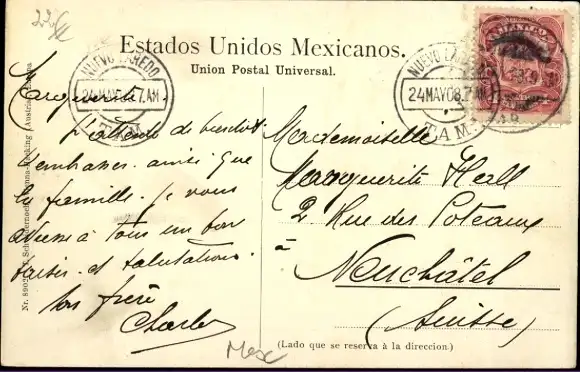 Estados Unidos Mexicanos.
Union Postal Universal.
NUEVO LAREDO
24 MAY 08. 7. AM
NUEVO LAREDO
24 MAY 08. 7. AM
MEXICO
Marguerite.
J'attends de bientôt
t'embrasser ainsi que
la famille. je vous
adresse à tous un bon
baiser et salutations.
ton frère
Charles
Mex
Mademoiselle
Marguerite Hall
2 Rue des Poteaux
à
Neuchâtel
(Suisse)
(Lado que se reserva à la direccion.)